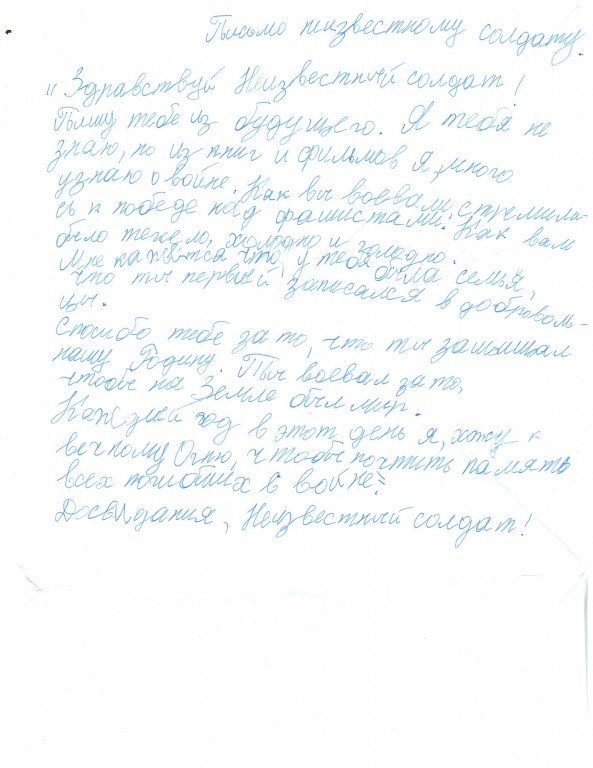 Письмо неизвестному солдату.
"Здравствуй Неизвестный солдат!
Пишу тебе из будущего. Я тебя не
знаю, но из книг и фильмов я, много
узнаю о войне. Как вы воевали, стремили-
сь к победе над фашистами. Как вам
было тежело, холодно и голодно.
Мне кажится что, у тебя была семья,
что ты первый записался в доброволь-
цы.
Спосибо тебе за то, что ты защищал
нашу Родину. Ты воевал за то,
чтобы на Земле был мир.
Каждый год в этот день я, хожу к
вечному Огню, чтобы почтить память
всех погибших в войне."
Досвидания, Неизвестный солдат!